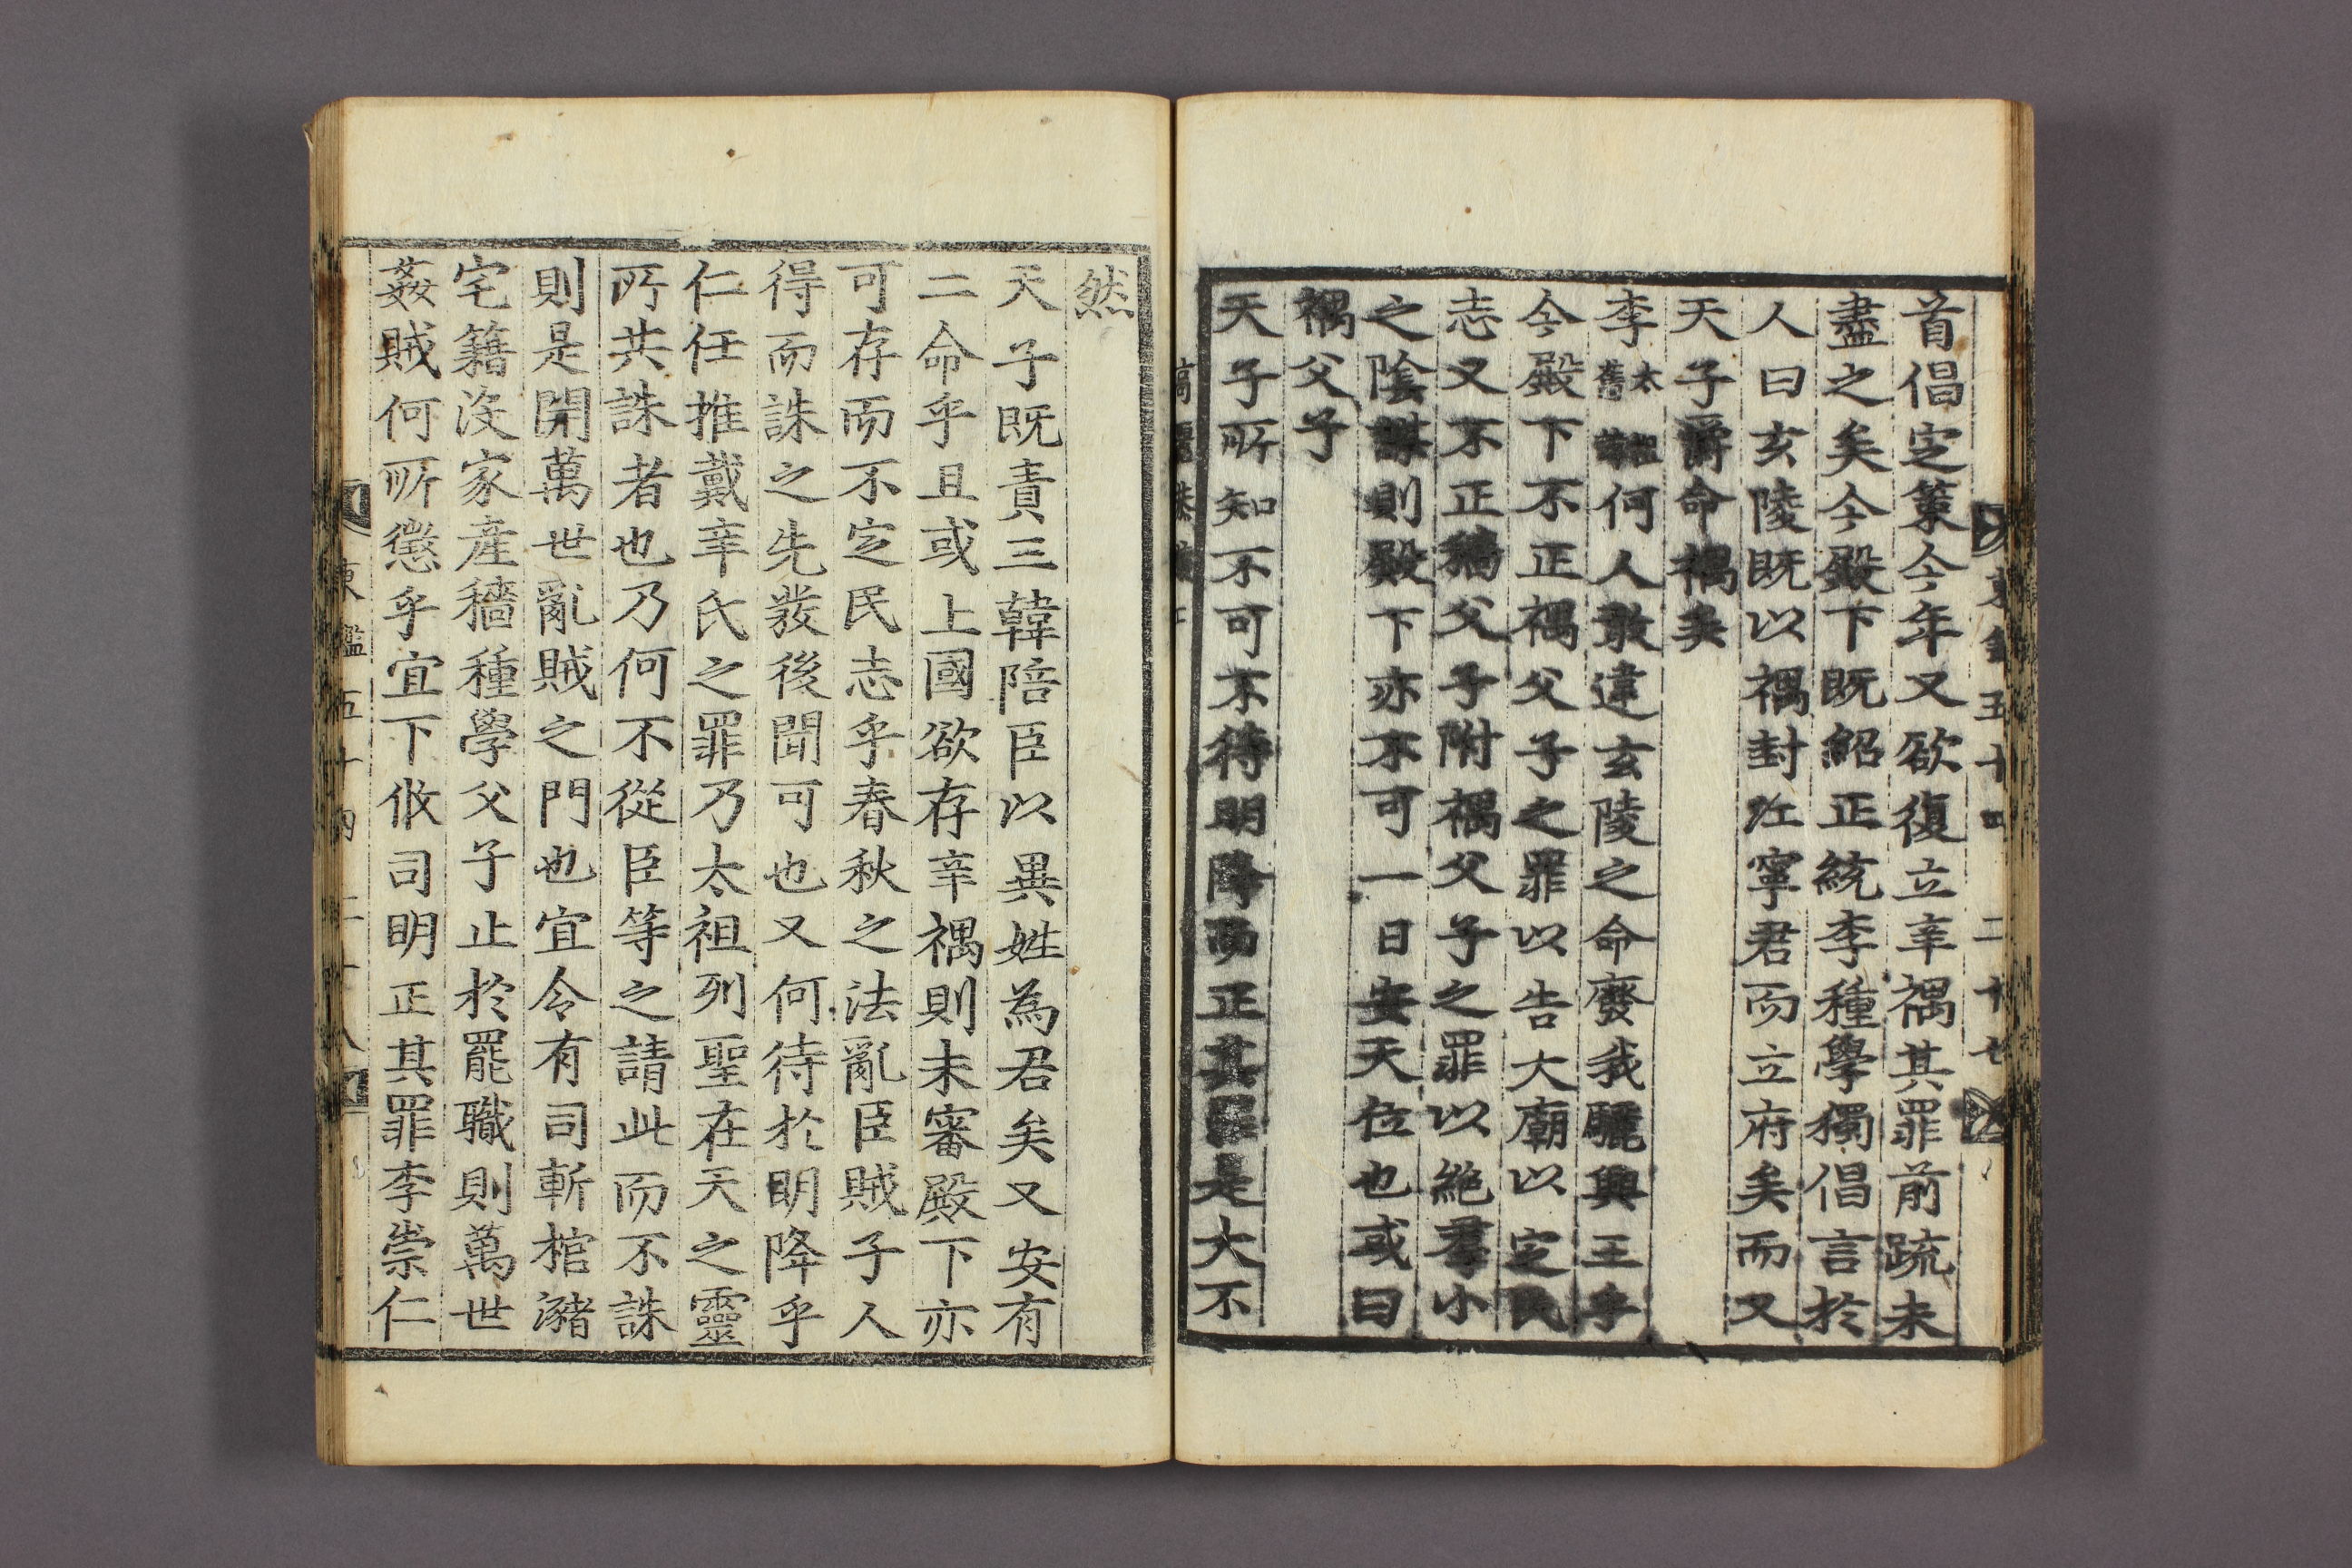 首倡定策今年又欲復立辛禑其罪前疏未
盡之矣今殿下既紹正統李種學獨倡言於
人曰玄陵既以禑封江寧君而立府矣而又
天子爵命禑矣
李太祖舊諱何人敢違玄陵之命廢我驪興王乎
今殿下不正禑父子之罪以告大廟以定民
志又不正禑父子附禑父子之罪以絶羣小
之陰謀則殿下亦不可一日安天位也或曰
禑父子
天子所知不可不待明降而正其罪是大不
然
天子既責三韓陪臣以異姓為君矣又安有
二命乎且或上國欲存辛禑則未審殿下亦
可存而不定民志乎春秋之法亂臣賊子人
得而誅之先發後聞可也又何待於明降乎
仁任推戴辛氏之罪乃太祖列聖在天之靈
所共誅者也乃何不從臣等之請此而不誅
則是開萬世亂賊之門也宜令有司斬棺瀦
宅籍沒家産穡種學父子止於罷職則萬世
姦賊何所懲乎宜下攸司明正其罪李崇仁